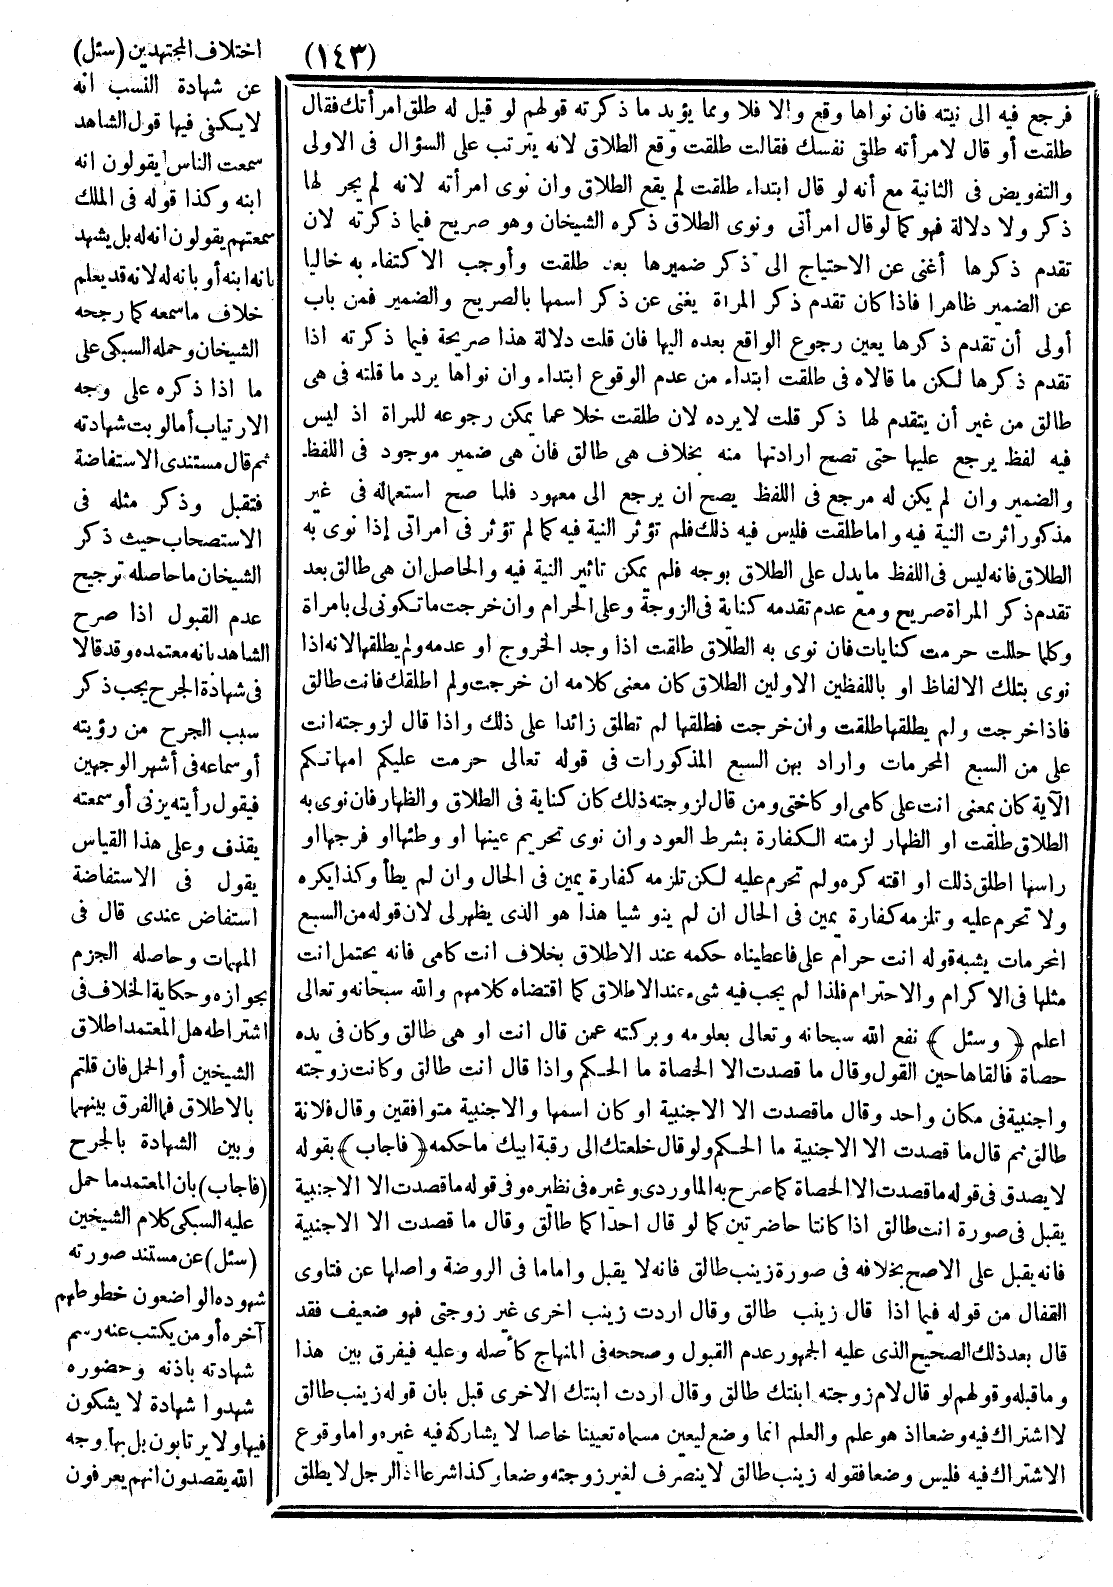 (١٤٣)
فرجع فيه الى نيته فان نواها وقع والا فلا ومما يؤيد ما ذكرته قولهم لو قيل له طلق امرأتك فقال
طلقت أو قال لامرأته طلقى نفسك فقالت طلقت وقع الطلاق لانه يترتب على السؤال فى الاولى
والتفويض فى الثانية مع أنه لو قال ابتداء طلقت لم يقع الطلاق وان نوى امرأته لانه لم يجر لها
ذكر ولا دلالة فهو كما لو قال امرأتى ونوى الطلاق ذكره الشيخان وهو صريح فيما ذكرته لان
تقدم ذكرها أغنى عن الاحتياج الى ذكر ضميرها بعد طلقت وأوجب الاكتفاء به خاليا
عن الضمير ظاهرا فاذا كان تقدم ذكر المراة يغنى عن ذكر اسمها بالصريح والضمير فمن باب
أولى أن تقدم ذكرها يعين رجوع الواقع بعده اليها فان قلت دلالة هذا صريحة فيما ذكرته اذا
تقدم ذكرها لكن ما قالاه فى طلقت ابتداء من عدم الوقوع ابتداء وان نواها يرد ما قلته فى هى
طالق من غير أن يتقدم لها ذكر قلت لا يرده لان طلقت خلا عما يمكن رجوعه للمراة اذ ليس
فيه لفظ يرجع عليها حتى تصح ارادتها منه بخلاف هى طالق فان هى ضمير موجود فى اللفظ
والضمير وان لم يكن له مرجع فى اللفظ يصح ان يرجع الى معهود فلما صح استعماله فى غير
مذكور اثرت النية فيه واما طلقت فليس فيه ذلك فلم تؤثر النية فيه كما لم تؤثر فى امراتى إذا نوى به
الطلاق فانه ليس فى اللفظ ما يدل على الطلاق بوجه فلم يمكن تاثير النية فيه والحاصل ان هى طالق بعد
تقدم ذكر المراة صريح ومع عدم تقدمه كناية فى الزوجة وعلى الحرام وان خرجت ما تكونى لى بامراة
وكلما حللت حرمت كنايات فان نوى به الطلاق طلقت اذا وجد الخروج او عدمه ولم يطلقها لانه اذا
نوى بتلك الالفاظ او باللفظين الاولين الطلاق كان معنى كلامه ان خرجت ولم اطلقك فانت طالق
فاذا خرجت ولم يطلقها طلقت وان خرجت فطلقها لم تطلق زائدا على ذلك واذا قال لزوجته انت
على من السبع المحرمات واراد بهن السبع المذكورات فى قوله تعالى حرمت عليكم امهاتكم
الآية كان بمعنى انت على كامى او كاختى ومن قال لزوجته ذلك كان كناية فى الطلاق والظهار فان نوى به
الطلاق طلقت او الظهار لزمته الكفارة بشرط العود وان نوى تحريم عينها او وطئها او فرجها او
راسها اطلق ذلك او اقته كره ولم تحرم عليه لكن تلزمه كفارة يمين فى الحال وان لم يطأ وكذا يكره
ولا تحرم عليه وتلزمه كفارة يمين فى الحال ان لم ينو شيا هذا هو الذى يظهر لى لان قوله من السبع
المحرمات يشبه قوله انت حرام على فاعطيناه حكمه عند الاطلاق بخلاف انت كامى فانه يحتمل انت
مثلها فى الاكرام والاحترام فلذا لم يجب فيه شىء عند الاطلاق كما اقتضاه كلامهم والله سبحانه وتعالى
اعلم (وسئل) نفع الله سبحانه وتعالى بعلومه وبركته عمن قال انت او هى طالق وكان فى يده
حصاة فالقاها حين القول وقال ما قصدت الا الحصاة ما الحكم واذا قال انت طالق وكانت زوجته
واجنبية فى مكان واحد وقال ما قصدت الا الاجنبية او كان اسمها والاجنبية متوافقين وقال فلانة
طالق ثم قال ما قصدت الا الاجنبية ما الحكم ولو قال خلعتك الى رقبة ابيك ما حكمه (فاجاب) بقوله
لا يصدق فى قوله ما قصدت الا الحصاة كما صرح به الماوردى وغيره فى نظيره وفى قوله ما قصدت الا الاجنبية
يقبل فى صورة انت طالق اذا كانتا حاضرتين كما لو قال احدا كما طالق وقال ما قصدت الا الاجنبية
فانه يقبل على الاصح بخلافه فى صورة زينب طالق فانه لا يقبل واما ما فى الروضة واصلها عن فتاوى
القفال من قوله فيما اذا قال زينب طالق وقال اردت زينب اخرى غير زوجتى فهو ضعيف فقد
قال بعد ذلك الصحيح الذى عليه الجمهور عدم القبول وصححه فى المنهاج كأصله وعليه فيفرق بين هذا
وما قبله وقولهم لو قال لام زوجته ابنتك طالق وقال اردت ابنتك الاخرى قبل بان قوله زينب طالق
لا اشتراك فيه وضعا اذ هو علم والعلم انما وضع ليعين مسماه تعيينا خاصا لا يشاركه فيه غيره واما وقوع
الاشتراك فيه فليس وضعا فقوله زينب طالق لا ينصرف لغير زوجته وضعا وكذا شرعا اذ الرجل لا يطلق
اختلاف المجتهدين (سئل)
عن شهادة النسب انه
لا يكفى فيها قول الشاهد
سمعت الناس يقولون انه
ابنه وكذا قوله فى الملك
سمعتهم يقولون انه له بل يشهد
بانه ابنه أو بانه له لانه قد يعلم
خلاف ما سمعه كما رجحه
الشيخان وحمله السبكى على
ما اذا ذكره على وجه
الارتياب أما لو بت شهادته
ثم قال مستندى الاستفاضة
فتقبل وذكر مثله فى
الاستصحاب حيث ذكر
الشيخان ما حاصله ترجيح
عدم القبول اذا صرح
الشاهد بانه معتمده وقد قالا
فى شهادة الجرح يجب ذكر
سبب الجرح من رؤيته
أو سماعه فى أشهر الوجهين
فيقول رأيته يزنى أو سمعته
يقذف وعلى هذا القياس
يقول فى الاستفاضة
استفاض عندى قال فى
المهمات وحاصله الجزم
بجوازه وحكاية الخلاف فى
اشتراطه هل المعتمد اطلاق
الشيخين أو الحمل فان قلتم
بالاطلاق فما الفرق بينهما
وبين الشهادة بالجرح
(فاجاب) بان المعتمد ما حمل
عليه السبكى كلام الشيخين
(سئل) عن مستند صورته
شهوده الواضعون خطوطهم
آخره أو من يكتب عنه رسم
شهادته باذنه وحضوره
شهدوا شهادة لا يشكون
فيها ولا يرتابون بل بها وجه
الله يقصدون انهم يعرفون